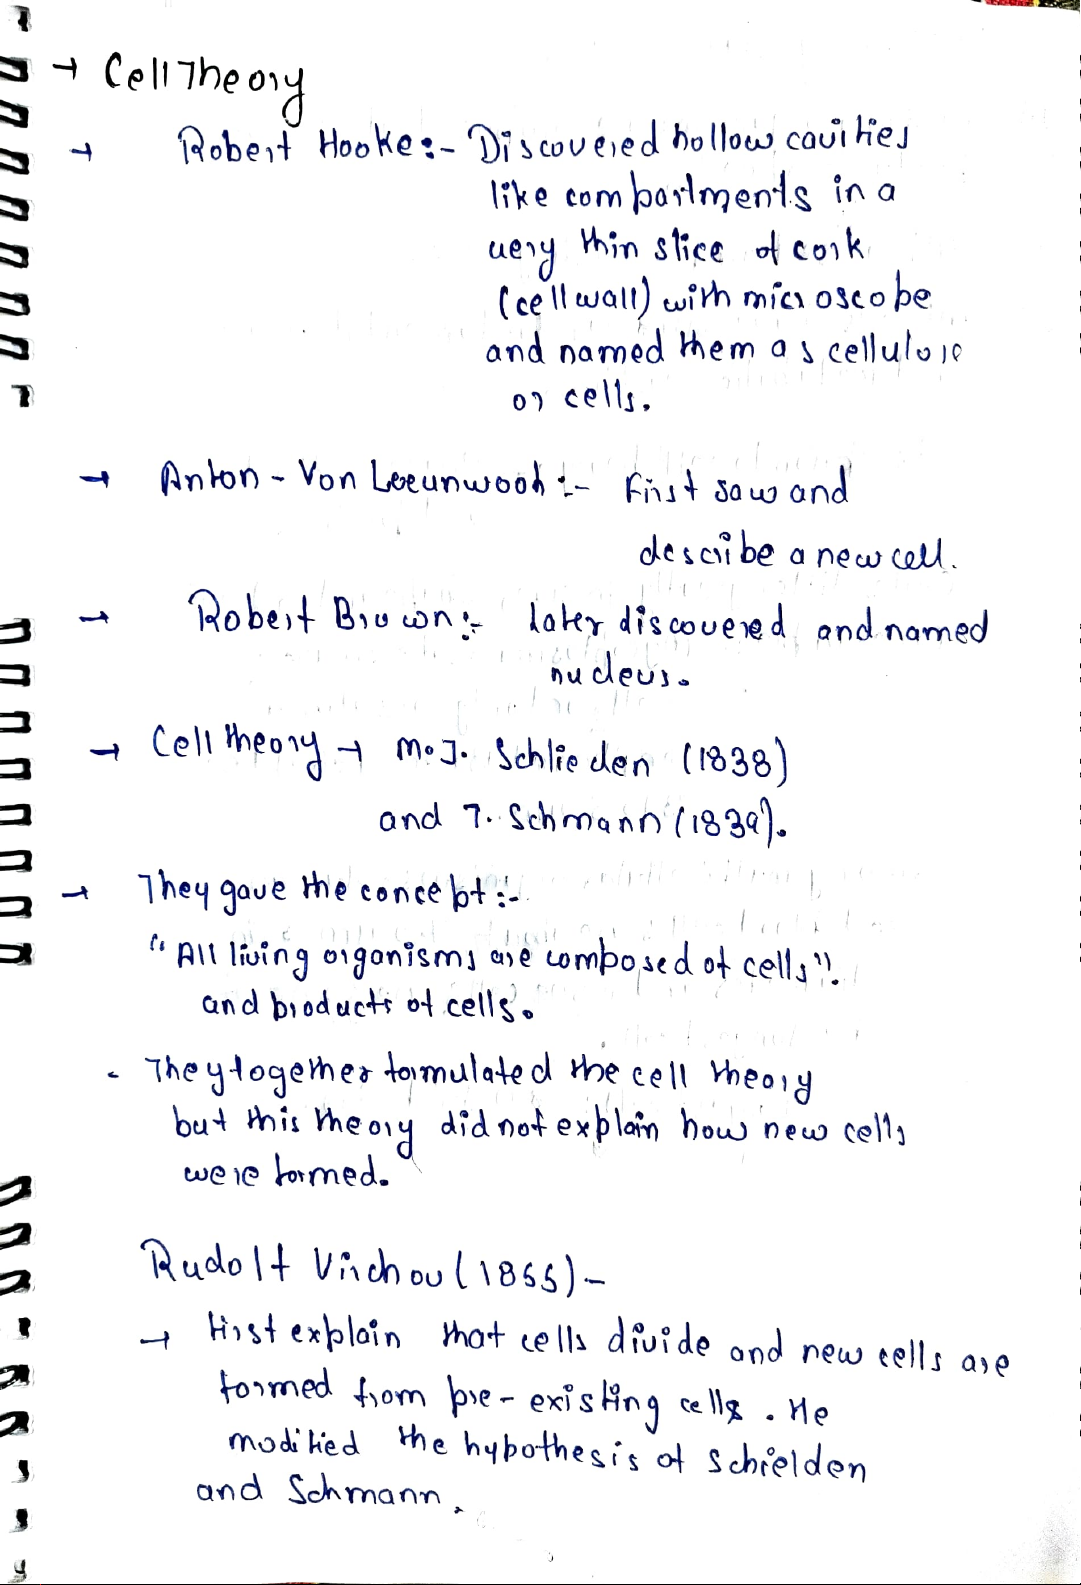 → Cell Theory
→ Robert Hooke :- Discovered hollow cavities
like compartments in a
very thin slice of cork
(cell wall) with microscope
and named them as cellulose
or cells.
→ Anton - Von Leeunwooh :- First saw and
describe a new cell.
→ Robert Brown :- later discovered and named
nucleus.
→ Cell theory → M.J. Schlieden (1838)
and T. Schmann (1839).
→ They gave the concept :-
"All living organisms are composed of cells".
and products of cells.
- They together formulated the cell theory
but this theory did not explain how new cells
were formed.
Rudolf Virchow (1855) -
→ First explain that cells divide and new cells are
formed from pre - existing cells. He
modified the hypothesis of Schielden
and Schmann.